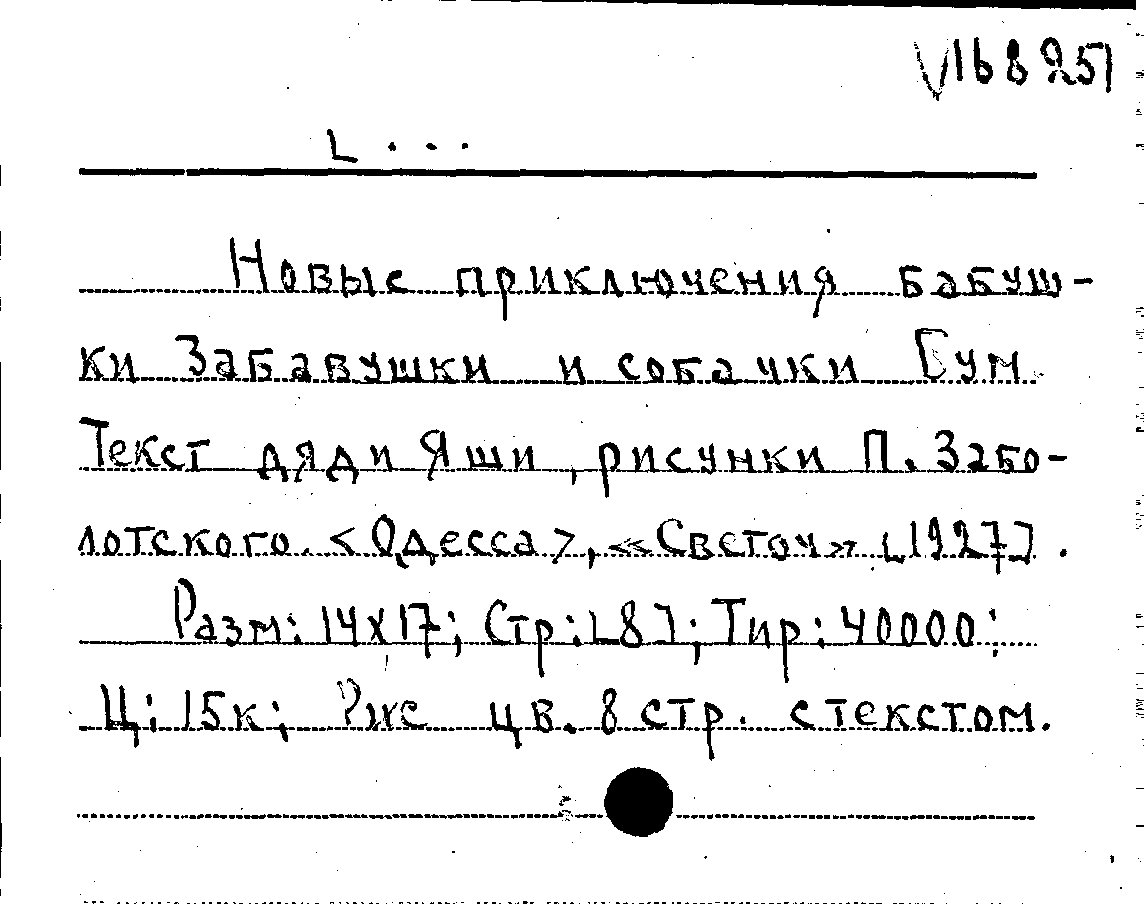 V168251
L...
Новые приключения бабуш-
ки Забавушки и собачки Бум.
Текст дяди Яши, рисунки П. Забо-
лотского. <Одесса>, «Светоч» [1927].
Разм: 14x17; Стр: [8]; Тир: 40000;
Ц: 15к; Рис цв. 8 стр. с текстом.